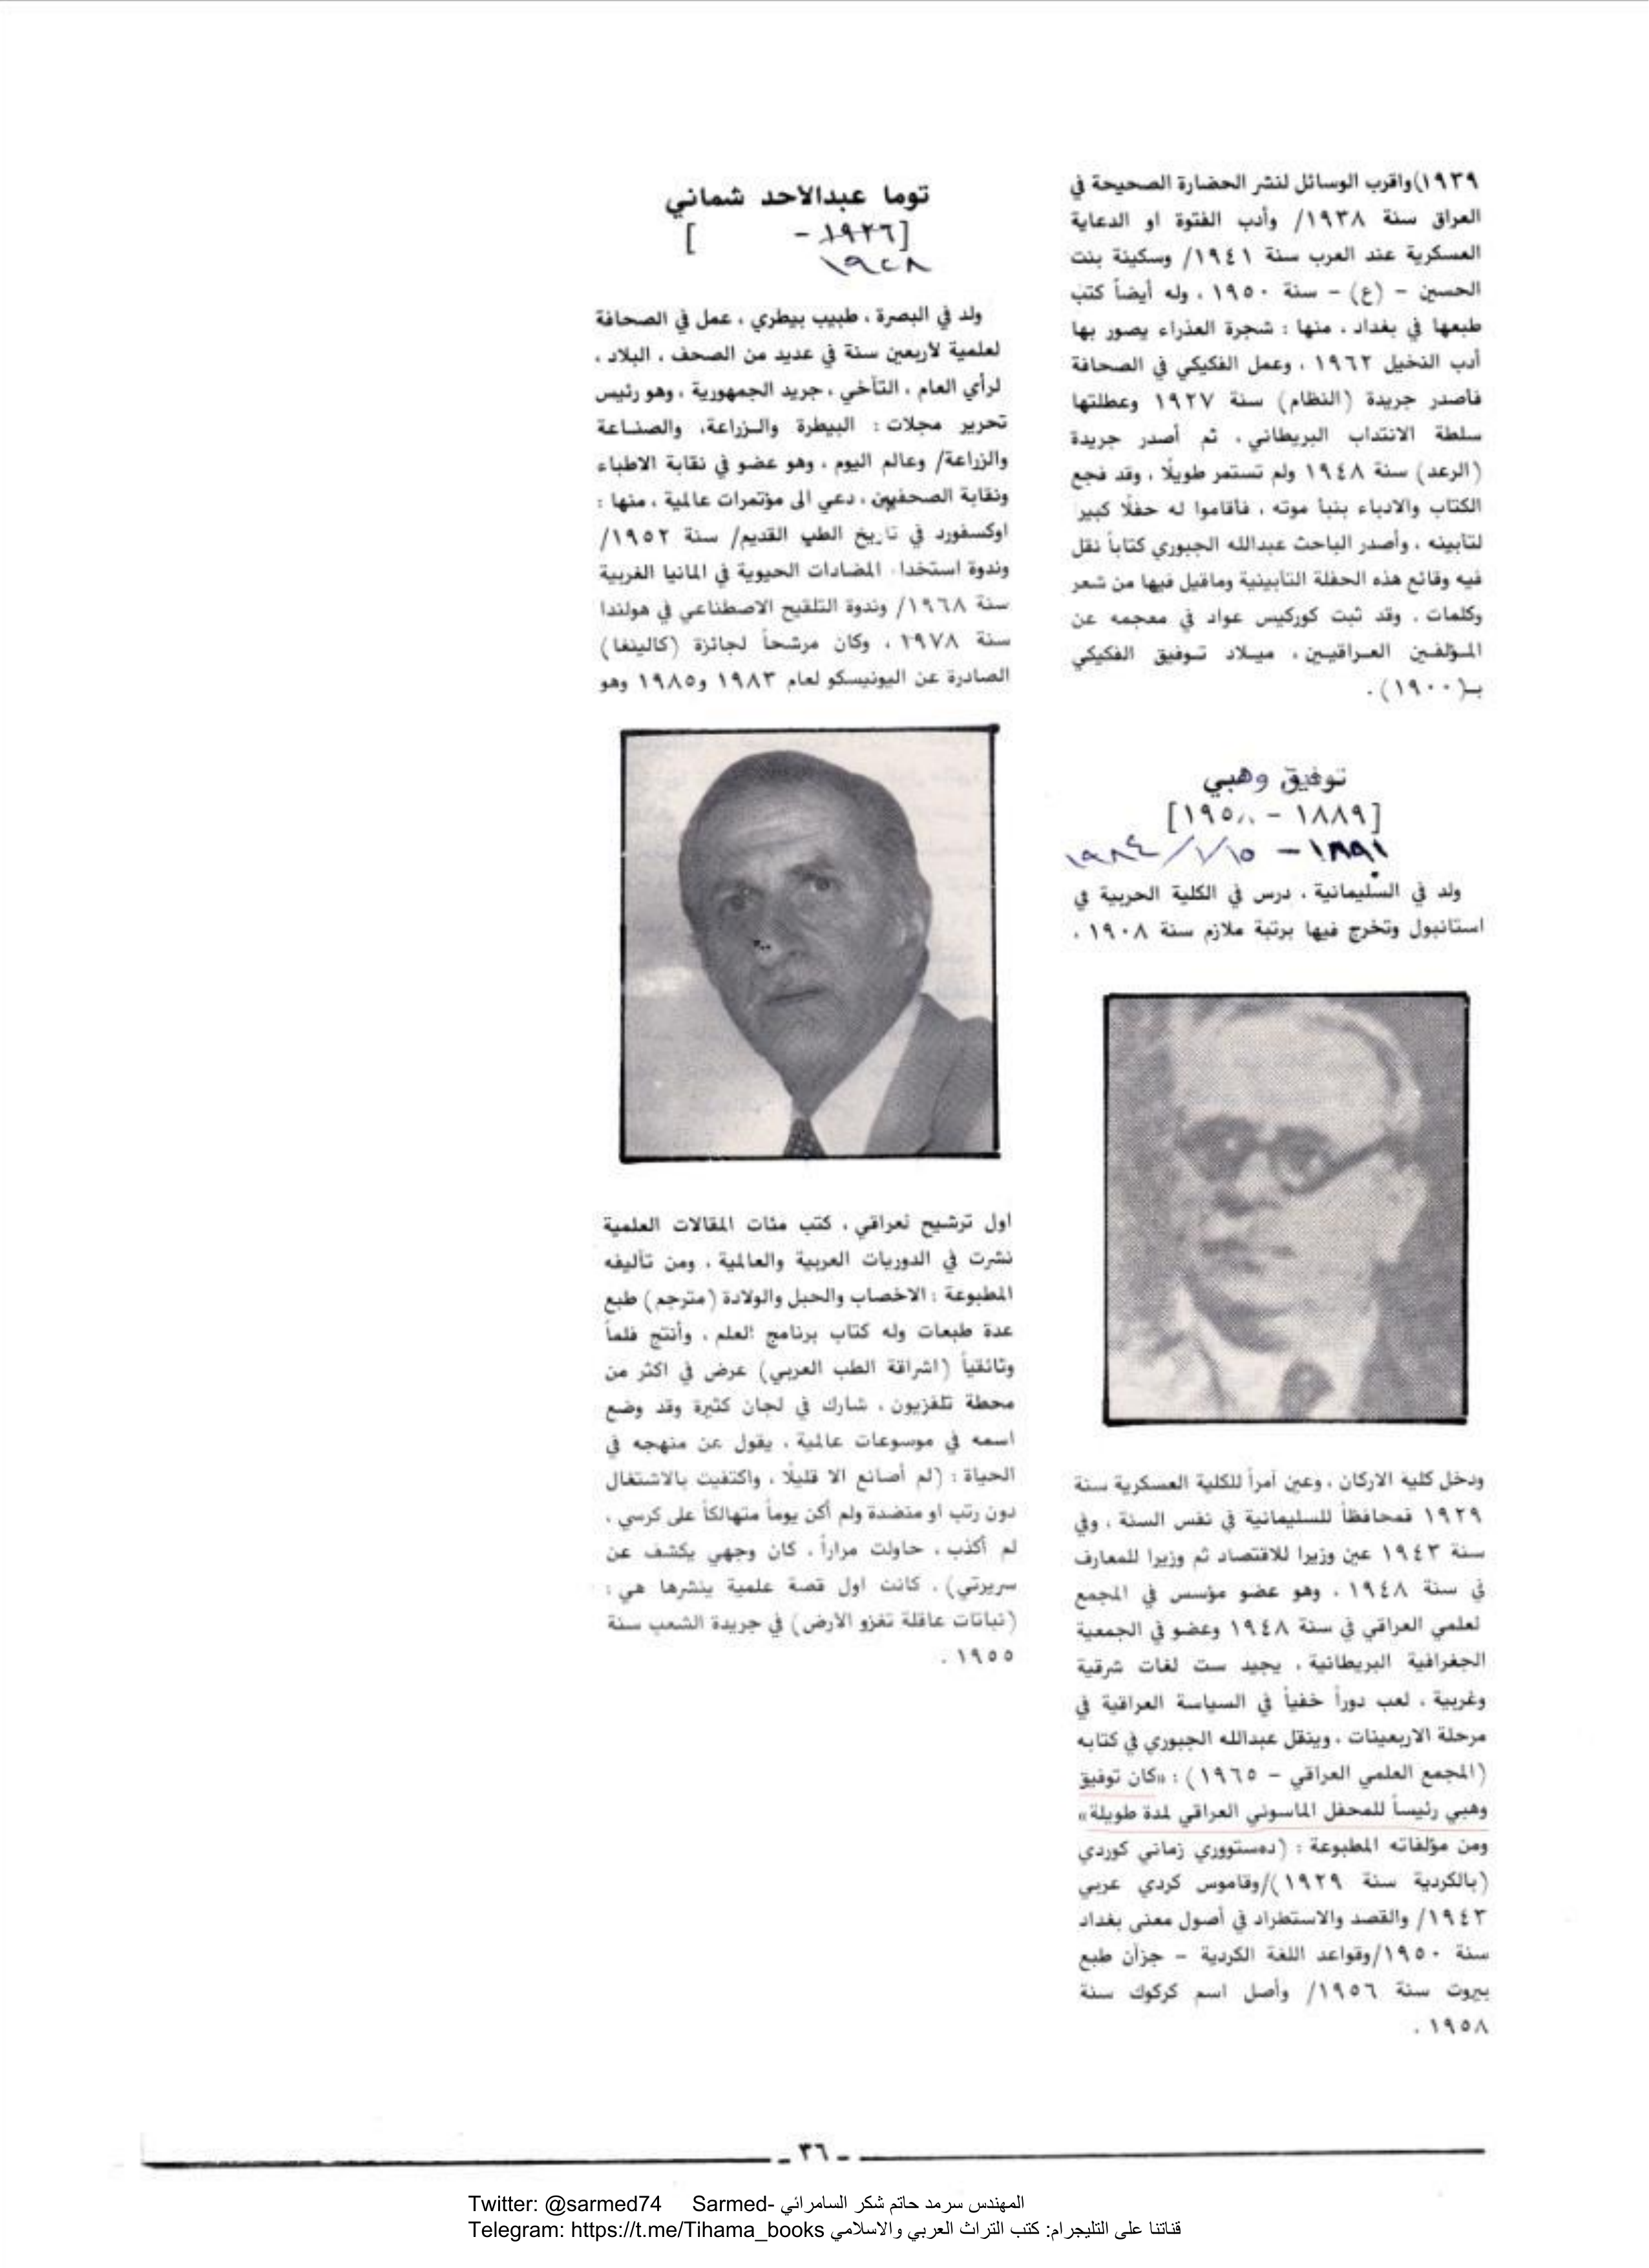 ١٩٣٩)واقرب الوسائل لنشر الحضارة الصحيحة في
العراق سنة ١٩٣٨/ وأدب الفتوة او الدعاية
العسكرية عند العرب سنة ١٩٤١/ وسكينة بنت
الحسين - (ع) - سنة ١٩٥٠ ، وله أيضاً كتب
طبعها في بغداد ، منها : شجرة العذراء يصور بها
أدب النخيل ١٩٦٢ ، وعمل الفكيكي في الصحافة
فأصدر جريدة (النظام) سنة ١٩٢٧ وعطلتها
سلطة الانتداب البريطاني ، ثم أصدر جريدة
(الرعد) سنة ١٩٤٨ ولم تستمر طويلًا ، وقد فجع
الكتاب والادباء بنبأ موته ، فأقاموا له حفلًا كبير
لتأبينه ، وأصدر الباحث عبدالله الجبوري كتاباً نقل
فيه وقائع هذه الحفلة التأبينية وماقيل فيها من شعر
وكلمات . وقد ثبت كوركيس عواد في معجمه عن
المؤلفين العراقيين ، ميلاد توفيق الفكيكي
بـ(١٩٠٠) .
توفيق وهبي
[١٨٨٩ - ١٩٥٠]
١٨٩١ - ١٩٨٤/١/١٥
ولد في السليمانية ، درس في الكلية الحربية في
استانبول وتخرج فيها برتبة ملازم سنة ١٩٠٨ ،
ودخل كلية الاركان ، وعين آمراً للكلية العسكرية سنة
١٩٢٩ فمحافظاً للسليمانية في نفس السنة ، وفي
سنة ١٩٤٣ عين وزيرا للاقتصاد ثم وزيرا للمعارف
في سنة ١٩٤٨ ، وهو عضو مؤسس في المجمع
لعلمي العراقي في سنة ١٩٤٨ وعضو في الجمعية
الجغرافية البريطانية ، يجيد ست لغات شرقية
وغربية ، لعب دوراً خفياً في السياسة العراقية في
مرحلة الاربعينات ، وينقل عبدالله الجبوري في كتابه
(المجمع العلمي العراقي - ١٩٦٥) : «كان توفيق
وهبي رئيساً للمحفل الماسوني العراقي لمدة طويلة»
ومن مؤلفاته المطبوعة : (دەستووري زماني كوردي
(بالكردية سنة ١٩٢٩)/وقاموس كردي عربي
١٩٤٣/ والقصد والاستطراد في أصول معنى بغداد
سنة ١٩٥٠/وقواعد اللغة الكردية - جزآن طبع
بيروت سنة ١٩٥٦/ وأصل اسم كركوك سنة
١٩٥٨ .
توما عبدالاحد شماني
[١٩٢٦ - ]
١٩٢٨
ولد في البصرة ، طبيب بيطري ، عمل في الصحافة
لعلمية لأربعين سنة في عديد من الصحف ، البلاد ،
لرأي العام ، التآخي ، جريد الجمهورية ، وهو رئيس
تحرير مجلات : البيطرة والزراعة، والصناعة
والزراعة/ وعالم اليوم ، وهو عضو في نقابة الاطباء
ونقابة الصحفيين ، دعي الى مؤتمرات عالمية ، منها :
اوكسفورد في تاريخ الطب القديم/ سنة ١٩٥٢/
وندوة استخدا المضادات الحيوية في المانيا الغربية
سنة ١٩٦٨/ وندوة التلقيح الاصطناعي في هولندا
سنة ١٩٧٨ ، وكان مرشحاً لجائزة (كالينغا)
الصادرة عن اليونيسكو لعام ١٩٨٣ و١٩٨٥ وهو
اول ترشيح لعراقي ، كتب مئات المقالات العلمية
نشرت في الدوريات العربية والعالمية ، ومن تأليفه
المطبوعة : الاخصاب والحبل والولادة (مترجم) طبع
عدة طبعات وله كتاب برنامج العلم ، وأنتج فلماً
وثائقياً (اشراقة الطب العربي) عرض في اكثر من
محطة تلفزيون ، شارك في لجان كثيرة وقد وضع
اسمه في موسوعات عالمية ، يقول عن منهجه في
الحياة : (لم أصانع الا قليلًا ، واكتفيت بالاشتغال
دون رتب او منضدة ولم أكن يوماً متهالكاً على كرسي ،
لم أكذب ، حاولت مراراً ، كان وجهي يكشف عن
سريرتي) . كانت اول قصة علمية ينشرها هي :
(نباتات عاقلة تغزو الأرض) في جريدة الشعب سنة
١٩٥٥ .
- ٣٦ -
Twitter: @sarmed74 Sarmed- المهندس سرمد حاتم شكر السامرائي
Telegram: https://t.me/Tihama_books قناتنا على التليجرام: كتب التراث العربي والاسلامي